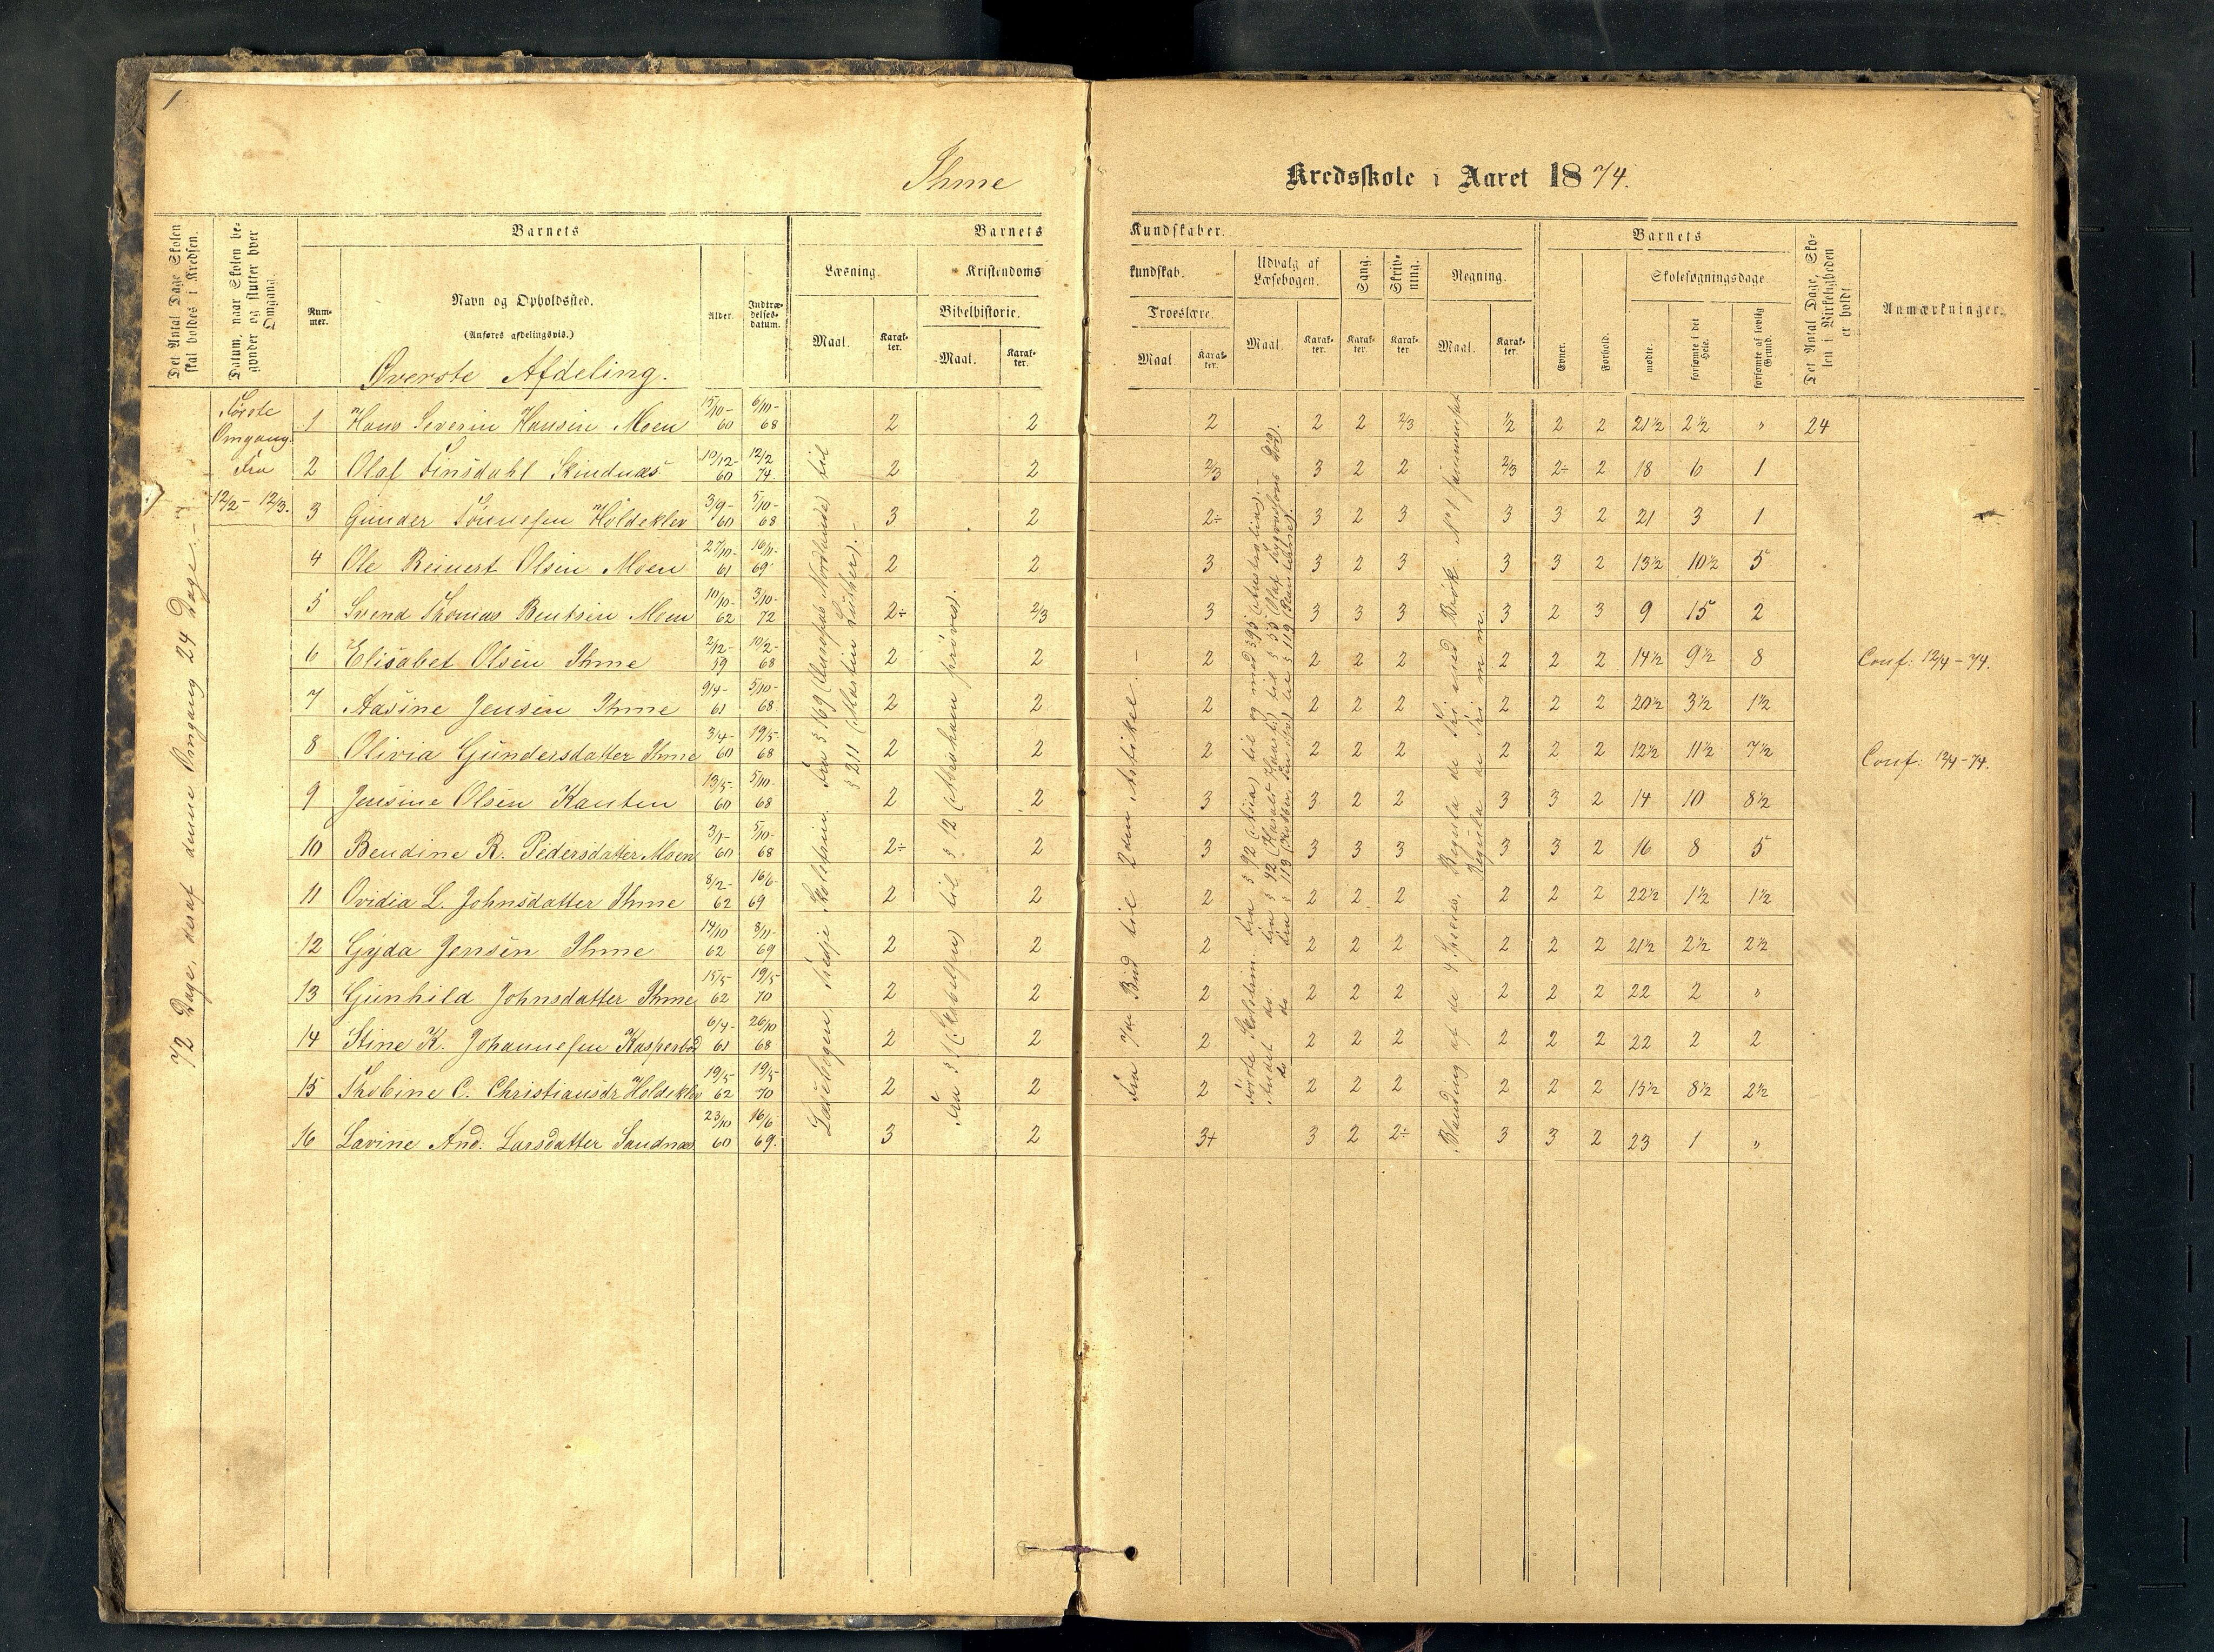 1
Ihme
Kredsskole i Aaret 1874.
Det Antal Dage Skolen skal holdes i Kredsen.
Datum, naar Skolen begynder og slutter hver Omgang.
Barnets
Barnets
Kundskaber.
Barnets
Det Antal Dage, Skolen i Virkeligheden er holdt.
Anmærkninger.
Nummer.
Navn og Opholdssted.
(Anføres afdelingsvis.)
Alder.
Indtrædelsesdatum.
Læsning.
Kristendoms
kundskab.
Udvalg af Læsebogen.
Sang.
Skrivning.
Regning.
Evner.
Forhold.
Skolesøgningsdage
Maal.
Karakter.
Bibelhistorie.
Maal.
Karakter.
Troeslære.
Maal.
Karakter.
Maal.
Karakter.
Karakter.
Karakter.
Maal.
Karakter.
mødte.
forsømte i det Hele.
forsømte af lovlig Grund.
Øverste Afdeling.
72 Dage, deraf denne Omgang 24 Dage.
Første
Omgang.
Fra
12/2 - 12/3.
1 Hans Severin Hansen Moen 15/10-60 6/10-68 2 2 2 2 2 2/3 1/2 2 2 21 1/2 2 1/2 " 24
2 Olaf Finsdahl Skindnæs 10/12-60 12/2 74. 2 2 2/3 3 2 2 2/3 2÷ 2 18 6 1
3 Gunder Tønnesen Holdeklev 3/9-60 5/10-68 3 2 2÷ 3 2 3 3 3 2 21 3 1
4 Ole Reinert Olsen Moen 27/10-61 16/11-69 2 2 3 3 2 3 3 3 2 13 1/2 10 1/2 5
5 Svend Thomas Bentsen Moen 10/10-62 3/10-72 2÷ 2/3 3 3 3 3 3 2 3 9 15 2
6 Elisabet Olsen Ihme 2/12-59 10/2-68 2 2 2 2 2 2 2 2 2 14 1/2 9 1/2 8 Conf: 12/4-74.
7 Aasine Jensen Ihme 9/4-61 5/10-68 2 2 2 2 2 2 2 2 2 20 1/2 3 1/2 1 1/2
8 Olivia Gundersdatter Ihme 3/4-60 19/5-68 2 2 2 2 2 2 2 2 2 12 1/2 11 1/2 7 1/2 Conf: 12/4-74.
9 Jensine Olsen Kanten 13/5-60 5/10-68 2 2 3 3 2 2 3 3 2 14 10 8 1/2
10 Bendine R. Pedersdatter Moen 3/1-60 5/10-68 2÷ 2 3 3 3 3 3 3 2 16 8 5
11 Ovidia L. Johnsdatter Ihme 8/2-62 16/6-69 2 2 2 2 2 2 2 2 2 22 1/2 1 1/2 1 1/2
12 Gyda Jensen Ihme 14/10 62 8/11-69 2 2 2 2 2 2 2 2 2 21 1/2 2 1/2 2 1/2
13 Gunhild Johnsdatter Ihme 15/5 62 19/5 70 2 2 2 2 2 2 2 2 2 22 2 "
14 Stine K. Johannesen Kasperbød 6/4-61 26/10 68 2 2 2 2 2 2 2 2 2 22 2 2
15 Thobine C. Christiansdr Holdeklev 19/5-62 19/5 70 2 2 2 2 2 2 2 2 2 15 1/2 8 1/2 2 1/2
16 Lavine And. Larsdatter Sandnæs 23/10 60 16/6 69. 3 2 3+ 3 2 2÷ 3 3 2 23 1 "
Læsebogen Tredje Skoletrin. Fra § 169 til
§ 211 (Martin Luther).
Fra § 1 til § 12 (Abraham prøves).
Fra 7de Bud til 2den Artikel.
Første Skoletrin. Fra § 92 (Asia) til og med § 95 (Australien).
Andet do. fra § 42 til § 55
do do fra § 113 til § 119
Blanding af de 4 Species, Regula de Tri med Brøk. No 1 sammensat
Regula de Tri m. m.